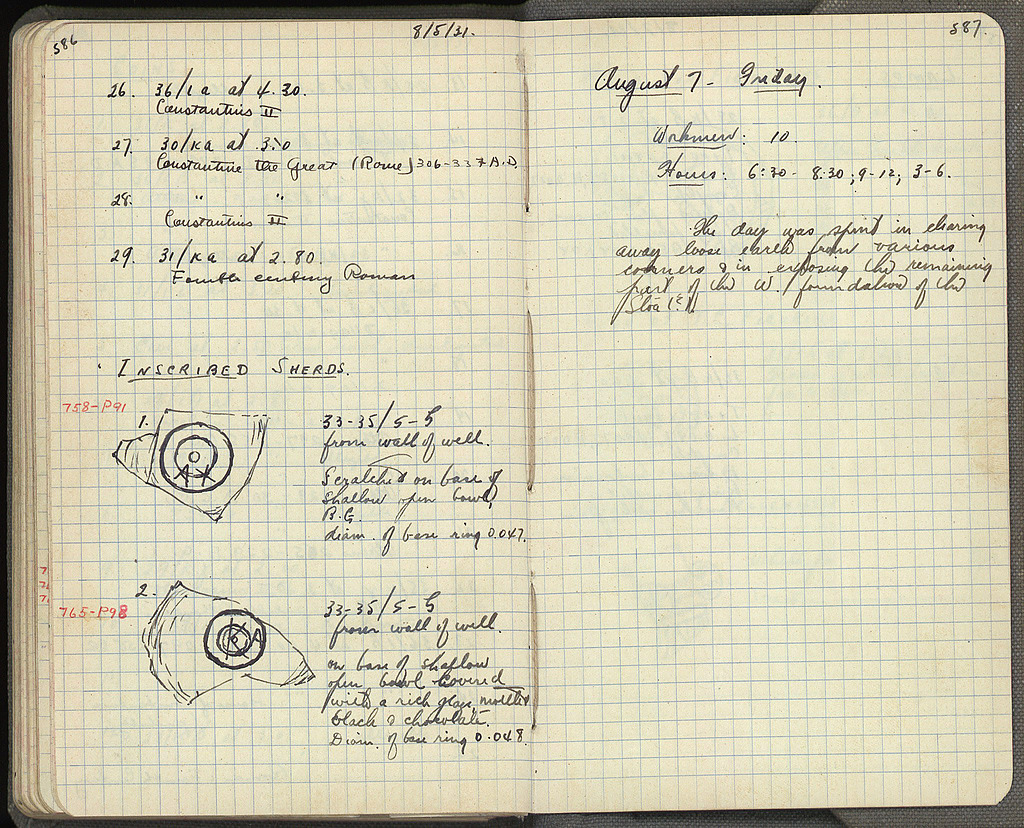 586
8/5/31.
26. 36/ΙΑ at 4.30.
Constantius II
27. 30/ΚΑ at 3.50
Constantine the Great (Rome) 306-337 A.D.
28. " "
Constantius II
29. 31/ΚΑ at 2.80.
Fourth century Roman
INSCRIBED SHERDS.
758-P91
1. 33-35/5-
from wall of well.
Scratched on base of
shallow open bowl,
B.G.
diam. of base ring 0.047.
AX
7
7
7
765-P98
2. 33-35/5-
from wall of well.
on base of shallow
open bowl covered
with a rich glaze, mottled
black & chocolate.
Diam. of base ring 0.048.
KA
587.
August 7 - Friday.
Workmen: 10.
Hours: 6:30 - 8:30; 9-12; 3-6.
The day was spent in clearing
away loose earth from various
corners & in exposing the remaining
part of the W. foundation of the
Stoa (?).